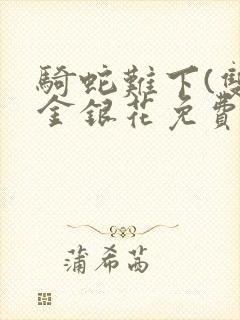 騎蛇難下(雙
金銀花免費
蒲希茜